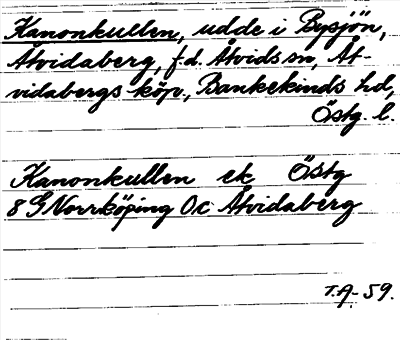 Kanonkullen, udde i Bysjön,
Åtvidaberg, f.d. Åtvids sn, Åt-
vidabergs köp., Bankekinds hd,
Östg. l.
Kanonkullen ek Östg
8 G Norrköping 0c Åtvidaberg
T.A. 59.